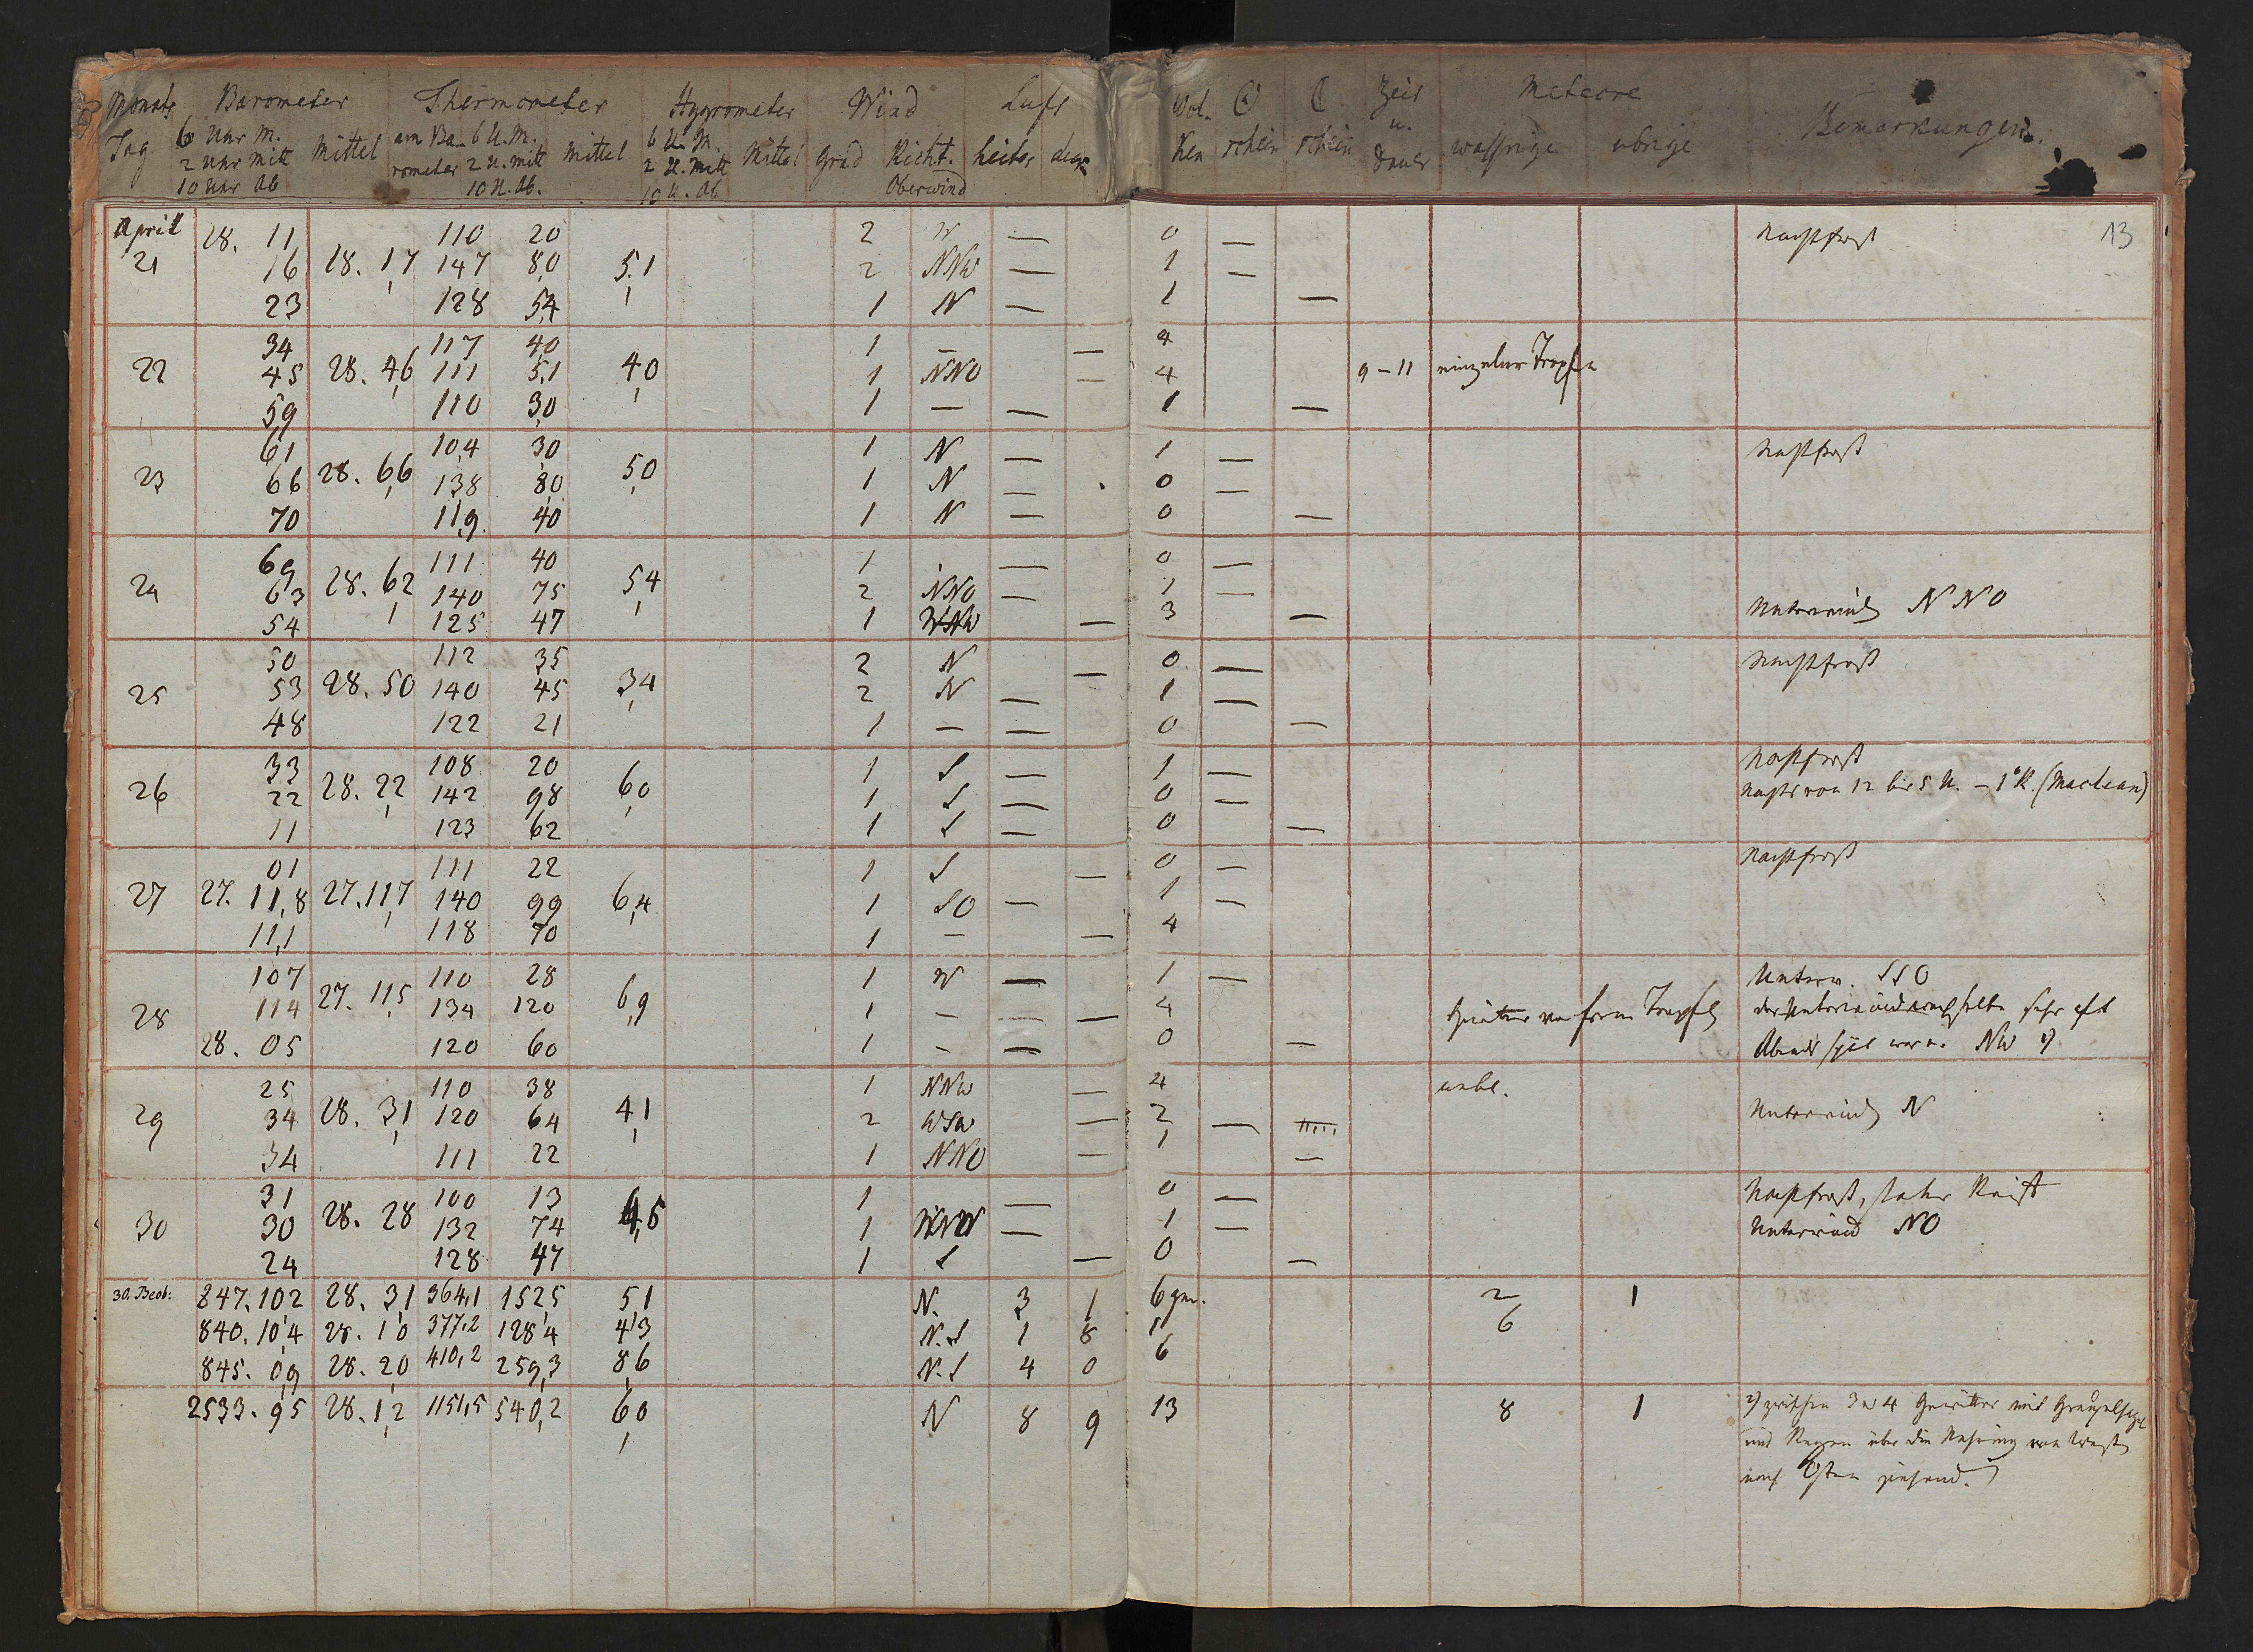 Monats Barometer Thermometer Hygrometer Wind Luft Wol- ☉ ☾ Zeit Meteore
Tag 6 Uhr M. Mittel am Ba- 6 U. M. Mittel 6 U. M. Mittel Grad Richt. heiter ken schein schein u. wassrige ubrige Bemerkungen.
2 Uhr Mitt rometer 2 U. mitt 2 U. Mitt Dauer
10 Uhr Ab 10 U. Ab. 10 U. Ab Oberwind
13
April 28. 11 110 20 2 W — 0 — Nachtfrost
21 16 28. 17 147 80 5,1 2 NNW — 1 —
23 128 54 1 N — 1 —
34 117 40 1 — — 4
22 45 28. 46 111 51 40 1 NNO — 4 9–11 einzelne Tropfen
59 110 30 1 — — 1 —
61 104 30 1 N — 1 — Nachtfrost
23 66 28. 66 138 80 50 1 N — 0 —
70 119 40 1 N — 0 —
69 111 40 1 — 0 —
24 63 28. 62 140 75 54 2 NNO — 1 —
54 125 47 1 WNW — 3 — Unterwind NNO
50 112 35 2 N — 0 — Nachtfrost
25 53 28. 50 140 45 34 2 N — 1 —
48 122 21 1 — — 0 —
33 108 20 1 S — 1 — Nachtfrost
26 22 28. 22 142 98 60 1 S — 0 — Nachts von 12 bis 5 U. – 1° R. (Maclean)
11 123 62 1 S — 0 —
01 111 22 1 S — 0 — Nachtfrost
27 27. 11,8 27. 117 140 99 6,4 1 SO — 1 —
11,1 118 70 1 — — 4
107 110 28 1 W — 1 — Unterw. SSO
28 114 27. 115 134 120 6,9 1 — — 4 Tropfen der Unterwind wechselte sehr oft
28. 05 120 60 1 — — 0 — Abends spät war er NW
25 110 38 1 NNW — 4 unbe.
29 34 28. 31 120 64 41 2 WSW — 2 — Unterwind N
34 111 22 1 NNO — 1 —
31 100 13 1 — 0 — Nachtfrost, starker Reif
30 30 28. 28 132 74 4,5 1 WNW — 1 — Unterwind NO
24 128 47 1 S — 0 —
30. Beob: 847. 102 28. 31 364,1 152,5 51 N. 3 1 6 2 1
840. 10,4 28. 10 377,2 128,4 43 N.S 1 8 1 6
845. 09 28. 20 410,2 259,3 8,6 N.S 4 0 6
2533. 95 28. 1,2 1151,5 540,2 60 N 8 9 13 8 1 zwischen 3 u 4 Gewitter mit
und Regen über die Nehrung von West
nach Osten ziehend.